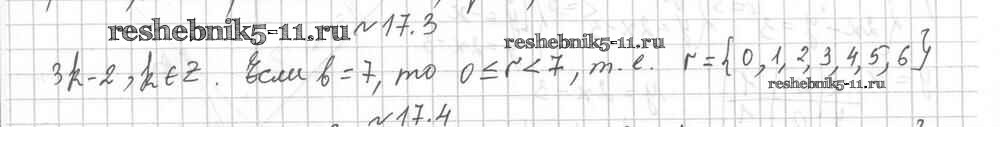 reshebnik5-11.ru №17.3
reshebnik5-11.ru
3k-2, k∈Z. Если b=7, то 0≤r<7, т.е. r={0,1,2,3,4,5,6}
reshebnik5-11.ru
№17.4